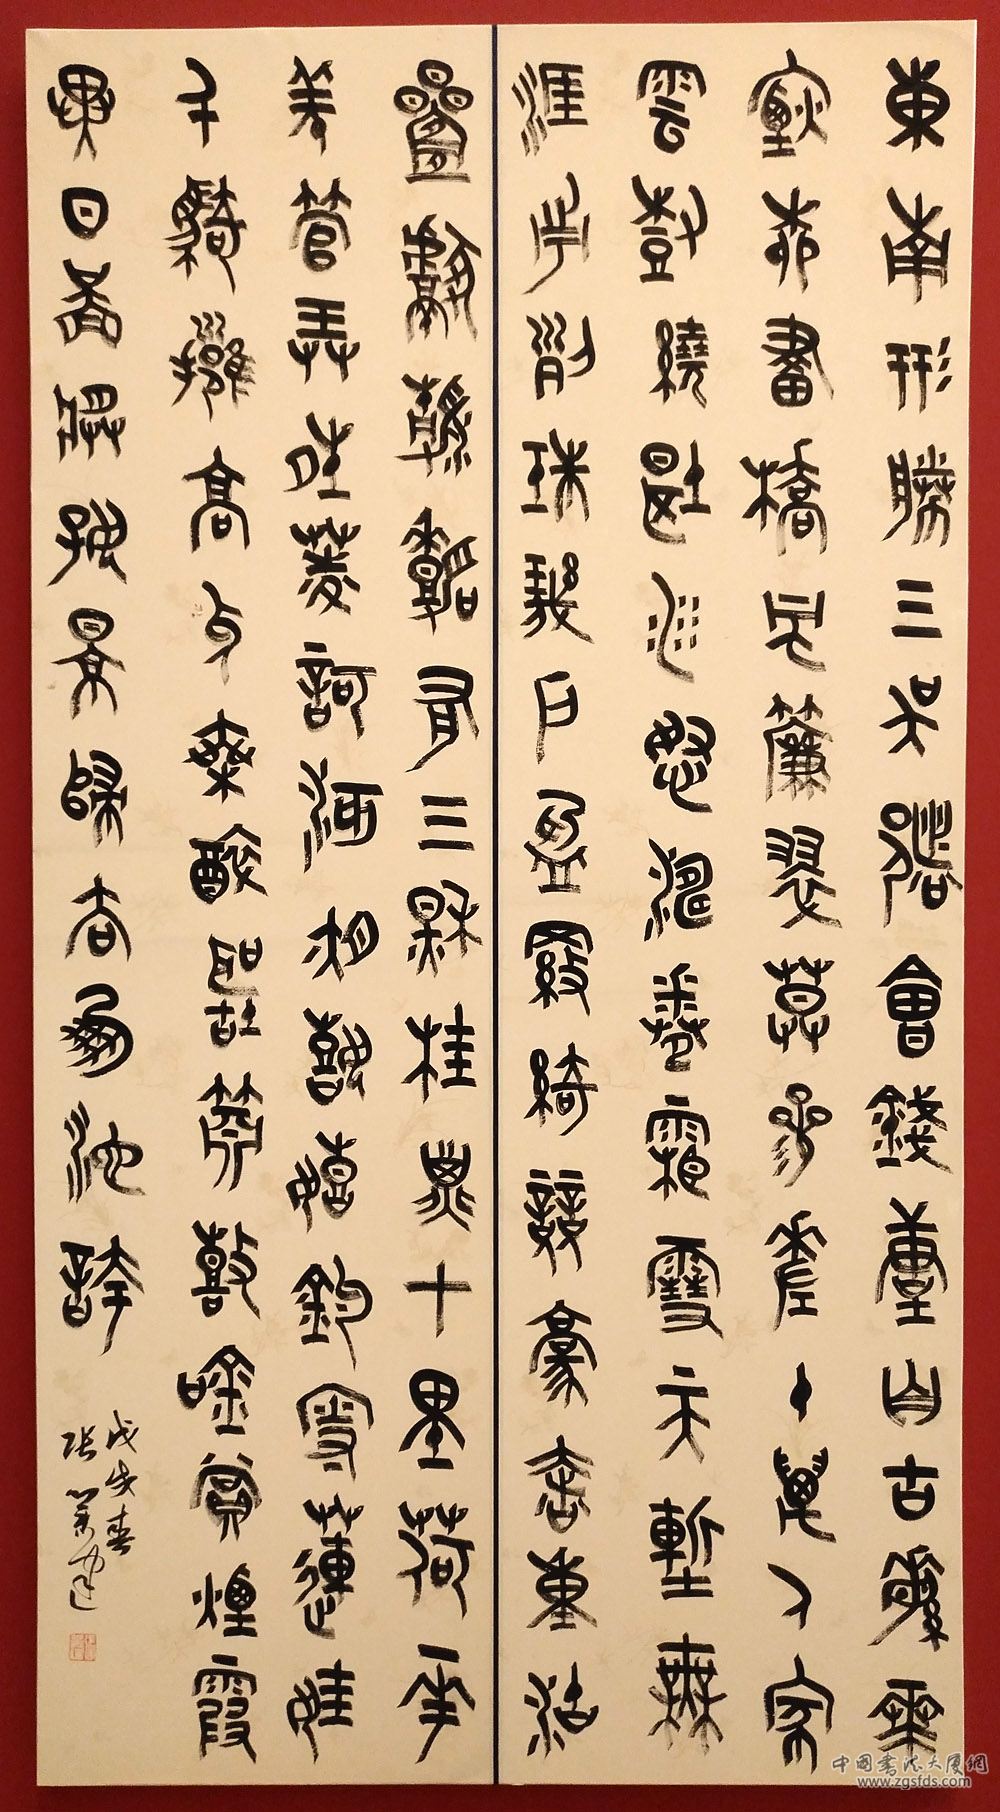 東南形勝三吳都會錢塘自古繁華
煙柳畫橋風簾翠幕參差十萬人家
雲樹繞堤沙怒濤卷霜雪天塹無
涯市列珠璣戶盈羅綺競豪奢重湖
疊巘清嘉有三秋桂子十里荷花
羌管弄晴菱歌泛夜嬉嬉釣叟蓮娃
千騎擁高牙乘醉聽簫鼓吟賞煙霞
異日圖將好景歸去鳳池誇
戊戌春
张業建
中國書法大廈網
www.zgsfds.com